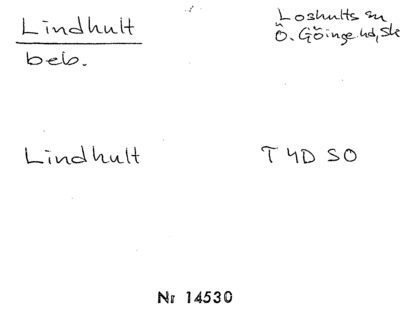 Lindhult
beb.
Loshults sn
Ö. Göinge hd, Sk
Lindhult
T 4D SO
Nr 14530